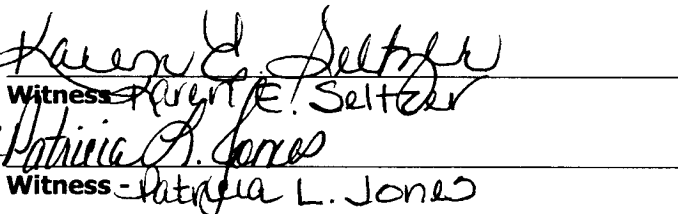 Karen E. Seltzer
Witness - Karen E. Seltzer
Patricia L. Jones
Witness - Patricia L. Jones